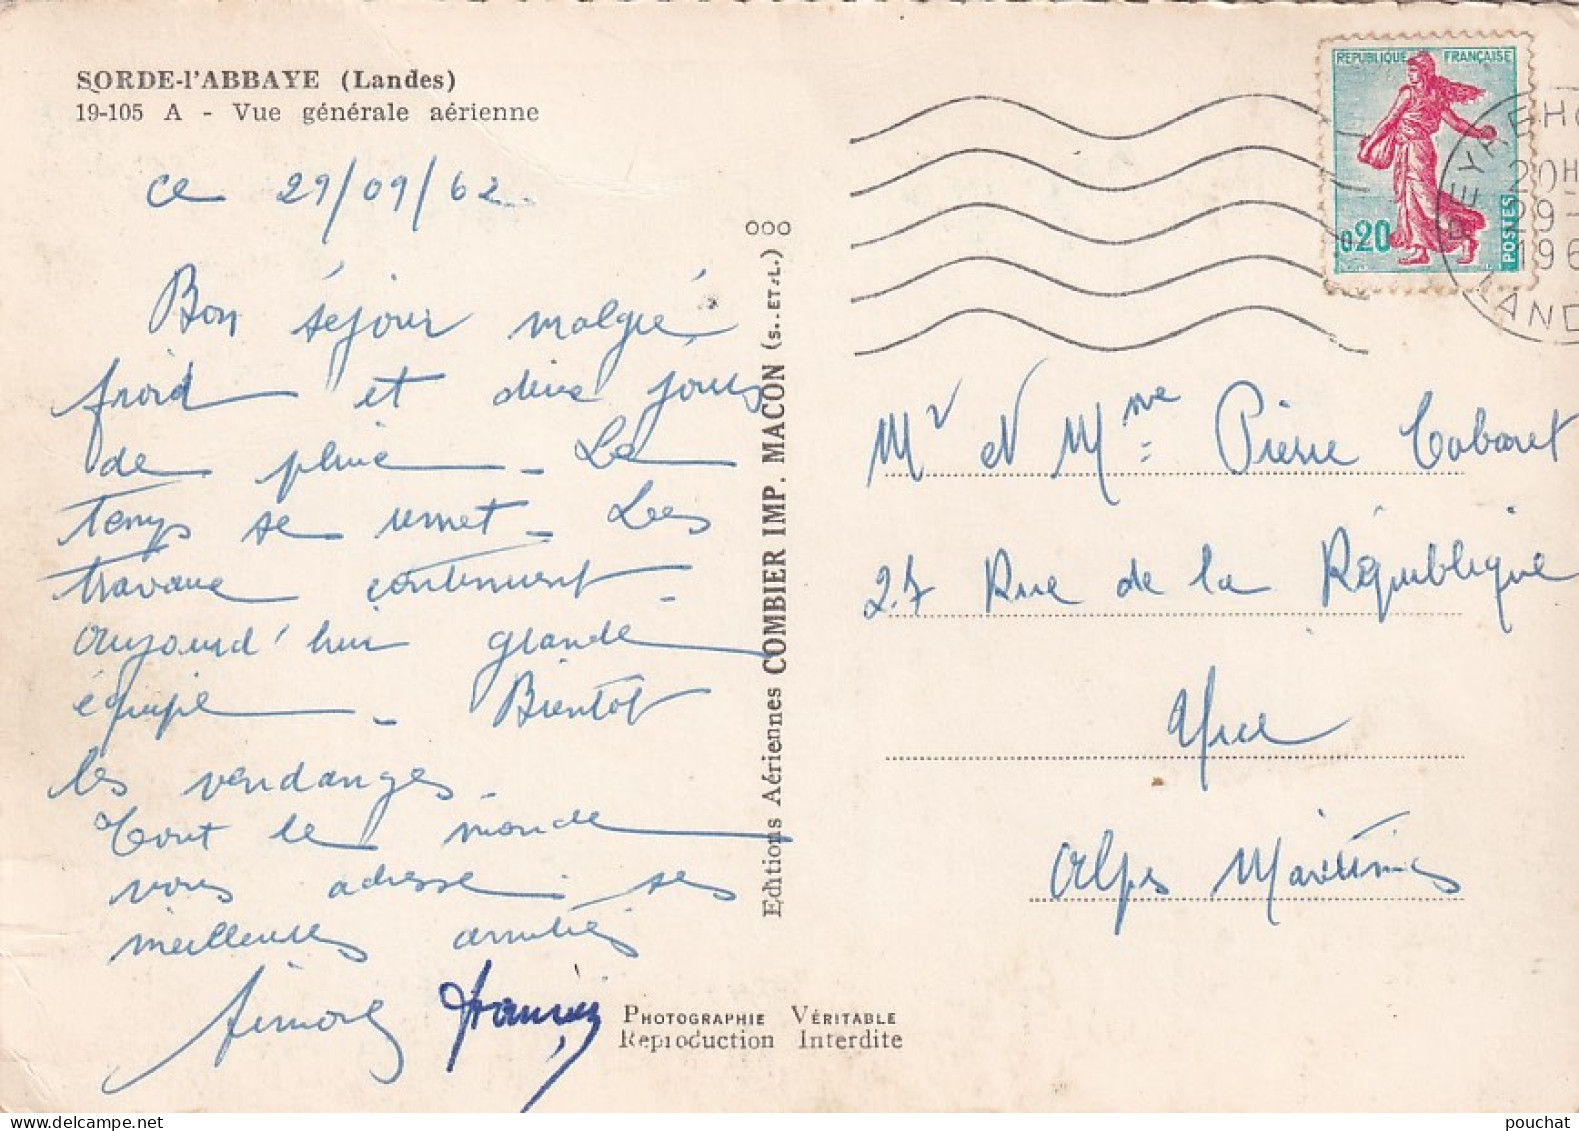 SORDE-l'ABBAYE (Landes)
19-105 A - Vue générale aérienne
ce 29/09/62.
Bon séjour malgré
froid et deux jours
de pluie - Le
temps se remet - Les
travaux continuent -
aujourd'hui grande
équipe - Bientôt
les vendanges.
Tout le monde
vous adresse ses
meilleures amitiés
Editions Aériennes COMBIER IMP. MACON (S.-ET-L.)
PHOTOGRAPHIE VÉRITABLE
Reproduction Interdite
REPUBLIQUE FRANÇAISE
0,20
POSTES
PEYREHO
20H
29-
196
LAND
Mr et Mme Pierre Cabaret
27 Rue de la République
Nice
Alpes Maritimes
pouchat